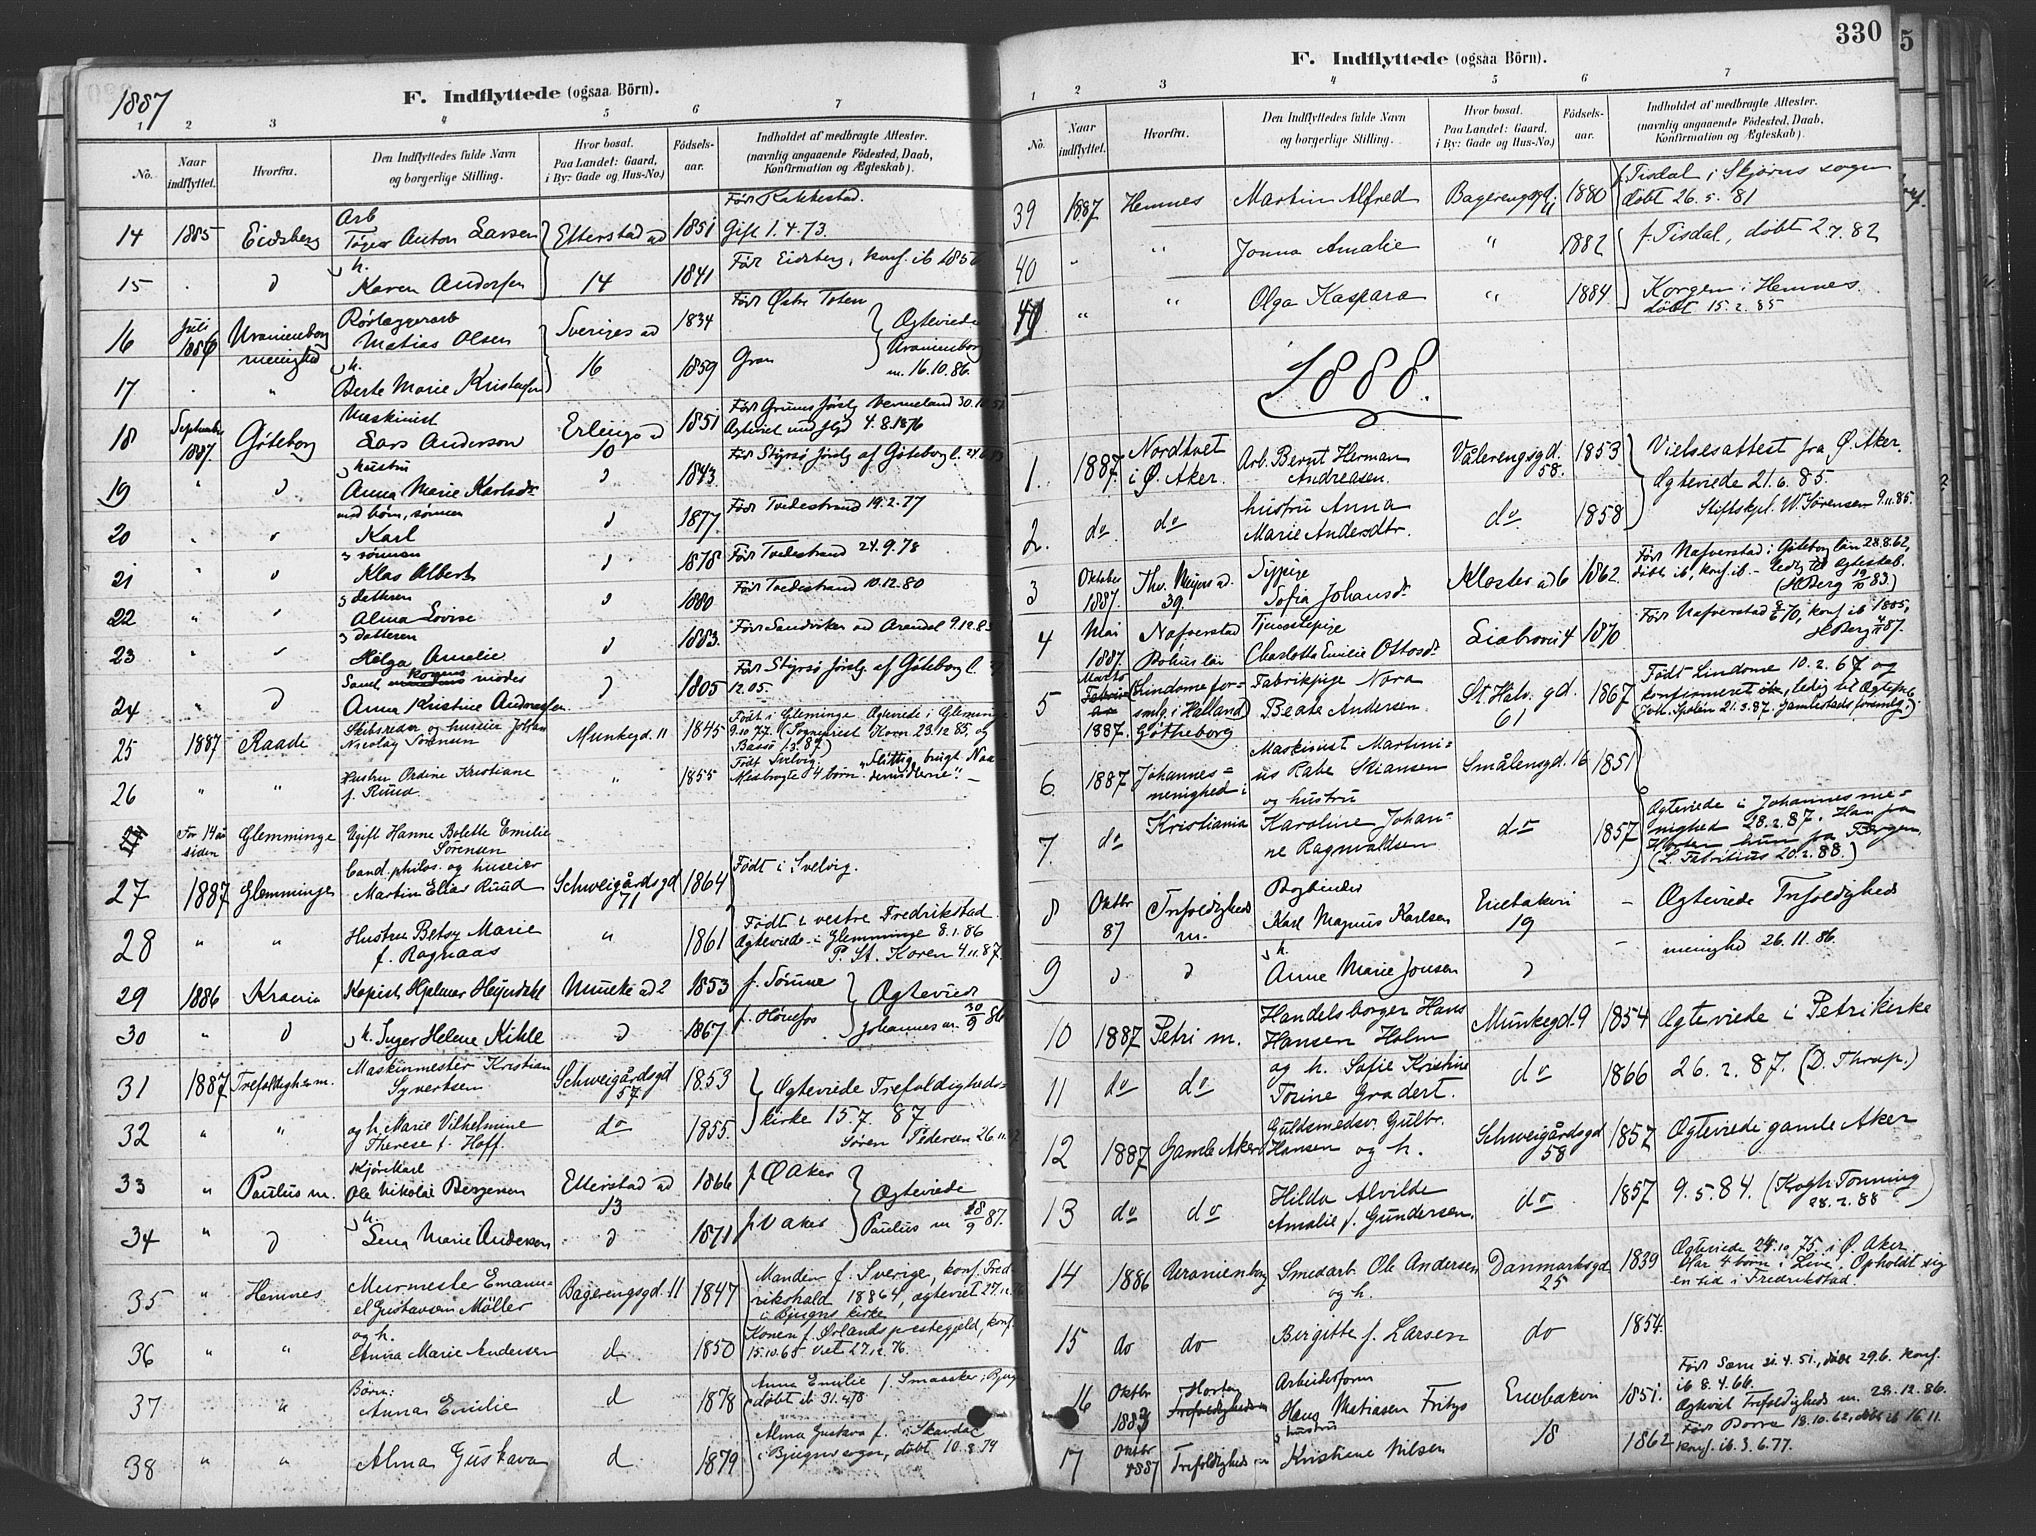 1887
F. Indflyttede (ogsaa Börn).
1 2 3 4 5 6 7
No.
Naar indflyttet.
Hvorfra.
Den Indflyttedes fulde Navn og borgerlige Stilling.
Hvor bosat. Paa Landet: Gaard, i By: Gade og Hus-No.)
Födsels-aar.
Indholdet af medbragte Attester. (navnlig angaaende Födested, Daab, Konfirmation og Ægteskab).
14 1885 Eidsberg Arb Anton Larsen Etterstad ad 1851 Født Rakkestad. Gift 1.4.73.
15 . d h. Karen Andersen 14 1841 Født Eidsberg, konf. ib 1856
16 Juli Uranienborg menighed Rørlæggerarb Matias Olsen Sveriges ad 1834 Født Østre Toten
17 . " h. Berte Marie 16 1859 Gran
Ægteviede Uranienborg m. 16.10.86.
18 September 1887. Göteborg Maskinist Lars Anderson Erlings ad 10 1851 4.8.1876
19 " d hustru Anna Marie d 1843
20 " d med børn, sønnen Karl d 1877 Født Tvedestrand 19.2.77
21 " d sønnen Klas Albert d 1878 Født Tvedestrand 24.9.78
22 " d datteren Alma Lovise d 1880 Født Tvedestrand 10.12.80
23 " d datteren Helga Amalie d 1883. Født Sandviken ved Arendal
24 d Samt moder Anna Kristine d 1805
25 1887 Raade Skibsreder og huseier Johan Nicolay Sørensen Munkegd. 11 1845 Født i Glemminge Ægteviede i Glemminge
26 " " Hustru Ordine Kristiane f. Ruud " 1855 Født Svelvig. Medbragte 4 børn.
For 14 aar siden Glemminge Ugift Hanne Bolette Emilie Sørensen
27 1887 Glemminge Cand. philos. og huseier Martin Elias Ruud Schweigårdsgd 71 1864 Født i Svelvig.
28 " " Hustru Betsy Marie f. Ragnaas " 1861 Født i vestre Fredrikstad. Ægteviede i Glemminge 8.1.86 P. St. Koren 4.11.87.
29 1886 Krania Kopist Hjalmar Heyerdahl Munke ad 2 1853
30 " d h. Inger Helene Kihle d 1867 f. Hønefos
Ægteviede Johannes m. 30/9 86
31 1887 Trefoldighe. m. Maskinmester Kristian Syvertsen Schweigårdsgd 57 1853 Ægteviede Trefoldigheds-
32 " " og h. Marie Vilhelmine Therese f. Hoff. do 1855. kirke 15.7.87 Søren Pedersen 26.11.87
33 " Paulus m. Kjørekarl Ole Nikolai Bergersen Etterstad ad 13 1866 f. Ø Aker
34 " d h. Lena Marie Andersen d 1871 f. V aker
Ægteviede Paulus m
35 " Hemnes Murmester Emanuel Gustavsen Møller Bagerengsgd. 11 1847 Manden f. Sverige, konf. Fredrikshald
36 " " og h. Anna Marie Andersen d 1850 Konen f. Ørlands prestegjeld, konf. 15.10.65 viet 27.12.76.
37 " Børn: Anna Emilie d 1878 Anna Emilie f. døbt
38 " " Alma Gustava d 1879 Alma Gustava f. døbt 10.8.79
330
5
F. Indflyttede (ogsaa Börn).
1 2 3 4 5 6 7
No.
Naar indflyttet.
Hvorfra.
Den Indflyttedes fulde Navn og borgerlige Stilling.
Hvor bosat. Paa Landet: Gaard, i By: Gade og Hus-No.)
Födsels-aar.
Indholdet af medbragte Attester. (navnlig angaaende Födested, Daab, Konfirmation og Ægteskab).
39 1887 Hemnes Martin Alfred Bagerengsgd. 11 1880 f. Tisdal i Skjørns sogn døbt 26.5.81
40 " " Jonna Amalie " 1882 f. Tisdal, døbt 2.7.82
41 " " Olga Kaspara " 1884 Korgen i Hemnes døbt 15.2.85
1888.
1. 1887. Nordtvet i Ø. Aker. Arb. Bernt Herman Andreasen. Vålerengsgd. 58. 1853 Vielsesattest fra Ø. Aker.
2. do do hustru Anna Marie Andersdtr. do 1858 Ægteviede 21.6.85. Stiftskpl. W. Sørensen 9.11.85.
3 Oktober 1887. Ths. Meyers ad. 39. Sypige Sofia Johansdr Kloster ad 6 1862. Født Nafverstad i Göteborg län 28.8.62, døbt ib, konf. ib. - ledig til Ægteskab.
4 Mai 1887. Nafverstad Bohus län Tjenestepige Charlotta Emilie Ottosdr Liabroveien 4 1870 Født Nafverstad konf ib 1885,
5 1887. (Lindome forsmlg. i Halland) Gøtheborg Fabrikpige Nora Beate Andersen. St. Halv. gd. 61 1867 Født Lindome 10.2.67 og konfirmeret ledig til Ægtesk.
6. 1887 Johannes-menighed i Maskinist Martinius Rabe Stiansen og hustru Smålensgd. 16 1851
7. do Kristiania Karoline Johanne Ragnvaldsen do 1857 Ægteviede i Johannes menighed 28.2.87. Han fra Horten hun fra Bergen. (L. Fabritius 20.2.88.)
8 Oktbr 87 Trefoldigheds m. Bogbinder Karl Magnus Karlsen Enebakvei 19 - Ægteviede Trefoldigheds
9 d d h. Anne Marie Jonsen d - menighed 26.11.86.
10 1887 Petri m. Handelsborger Hans Hansen Holm Munkegd. 9 1854 Ægteviede i Petrikirke
11 do do og h. Sofie Kristine Torine Gradert. do 1866 26.2.87. (D. Thrap.)
12 1887 Gamle Aker Guldsmedsv. Gulbr. Hansen og h. Schweigårdsgd 58 1857 Ægteviede gamle Aker
13 do do Hilda Alvilde Amalie f. Gundersen. do 1857 9.5.84. (Krogh Tonning 28.2.88)
14 1886 Uranienborg Smedarb. Ole Andersen og h. Danmarksgd 25 1839 Ægteviede 24.10.75. i Ø. Aker Har 4 børn i Live. Opholdt sig en tid i Fredrikstad.
15 do do Birgitte f. Larsen do 1854.
16 Oktbr Horten Arbeidsform Hans Matiasen Enebakvei 1851 Født Sem 21.4.51., døbt 29.6. konf. ib 8.4.66. Ægteviet Trefoldigheds m. 28.12.86.
17 Oktbr 1887 Trefoldigheds m hustru Kristiane Nilsen 18 1862 Født Borre 18.10.62, døbt ib 16.11. konf. ib. 3.6.77.